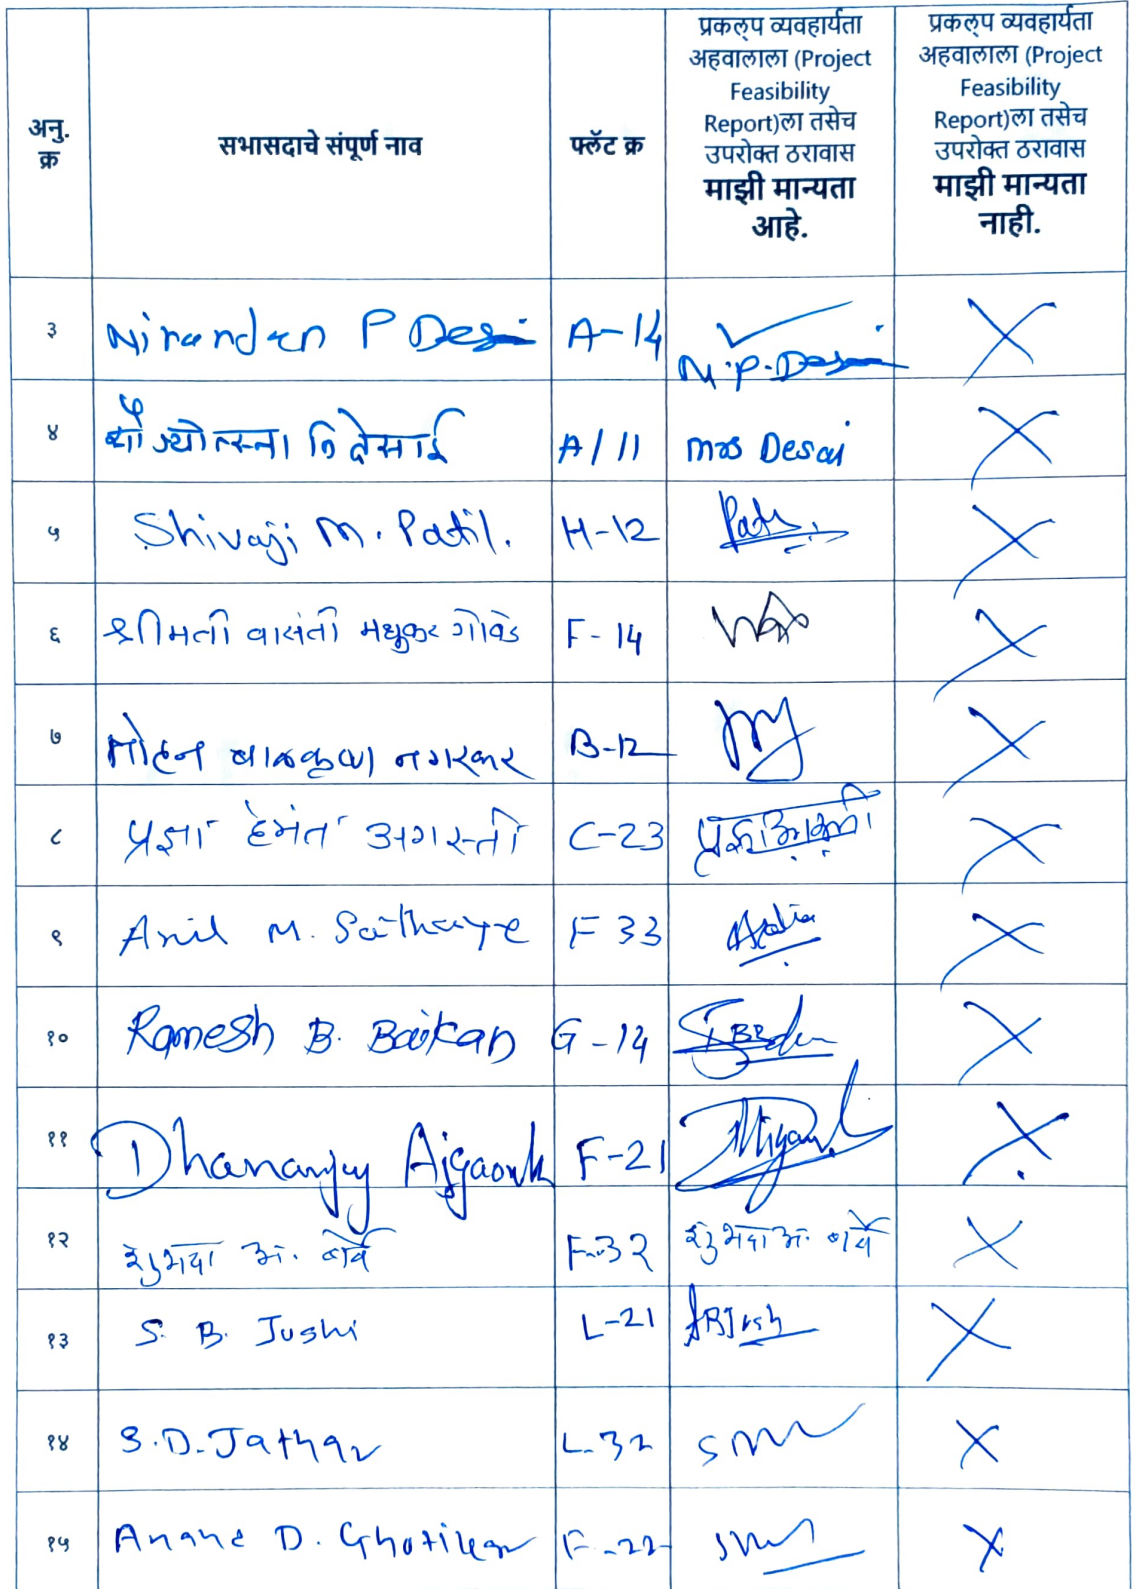 अनु.
क्र
सभासदाचे संपूर्ण नाव
फ्लॅट क्र
प्रकल्प व्यवहार्यता
अहवालाला (Project
Feasibility
Report)ला तसेच
उपरोक्त ठरावास
माझी मान्यता
आहे.
प्रकल्प व्यवहार्यता
अहवालाला (Project
Feasibility
Report)ला तसेच
उपरोक्त ठरावास
माझी मान्यता
नाही.
३ P Desai A-14
N.P. Desai
४ सौ ज्योत्स्ना नि देसाई A/11 mrs Desai
५ Shivaji M. Patil. H-12
६ श्रीमती वासंती मधुकर F-14
७ मोहन बाळकृष्ण नगरकर B-12
८ प्रज्ञा हेमंत अगस्ती C-23
९ Anil M. Sathaye F 33
१० Ramesh B. G-14
११ Dhananjay F-21
१२ शुभदा अ. बर्वे F-32 शुभदा अ. बर्वे
१३ S. B. Joshi L-21 SBJosh
१४ S.D. Jathar L-32
१५ Anand D. Ghotikar F-22